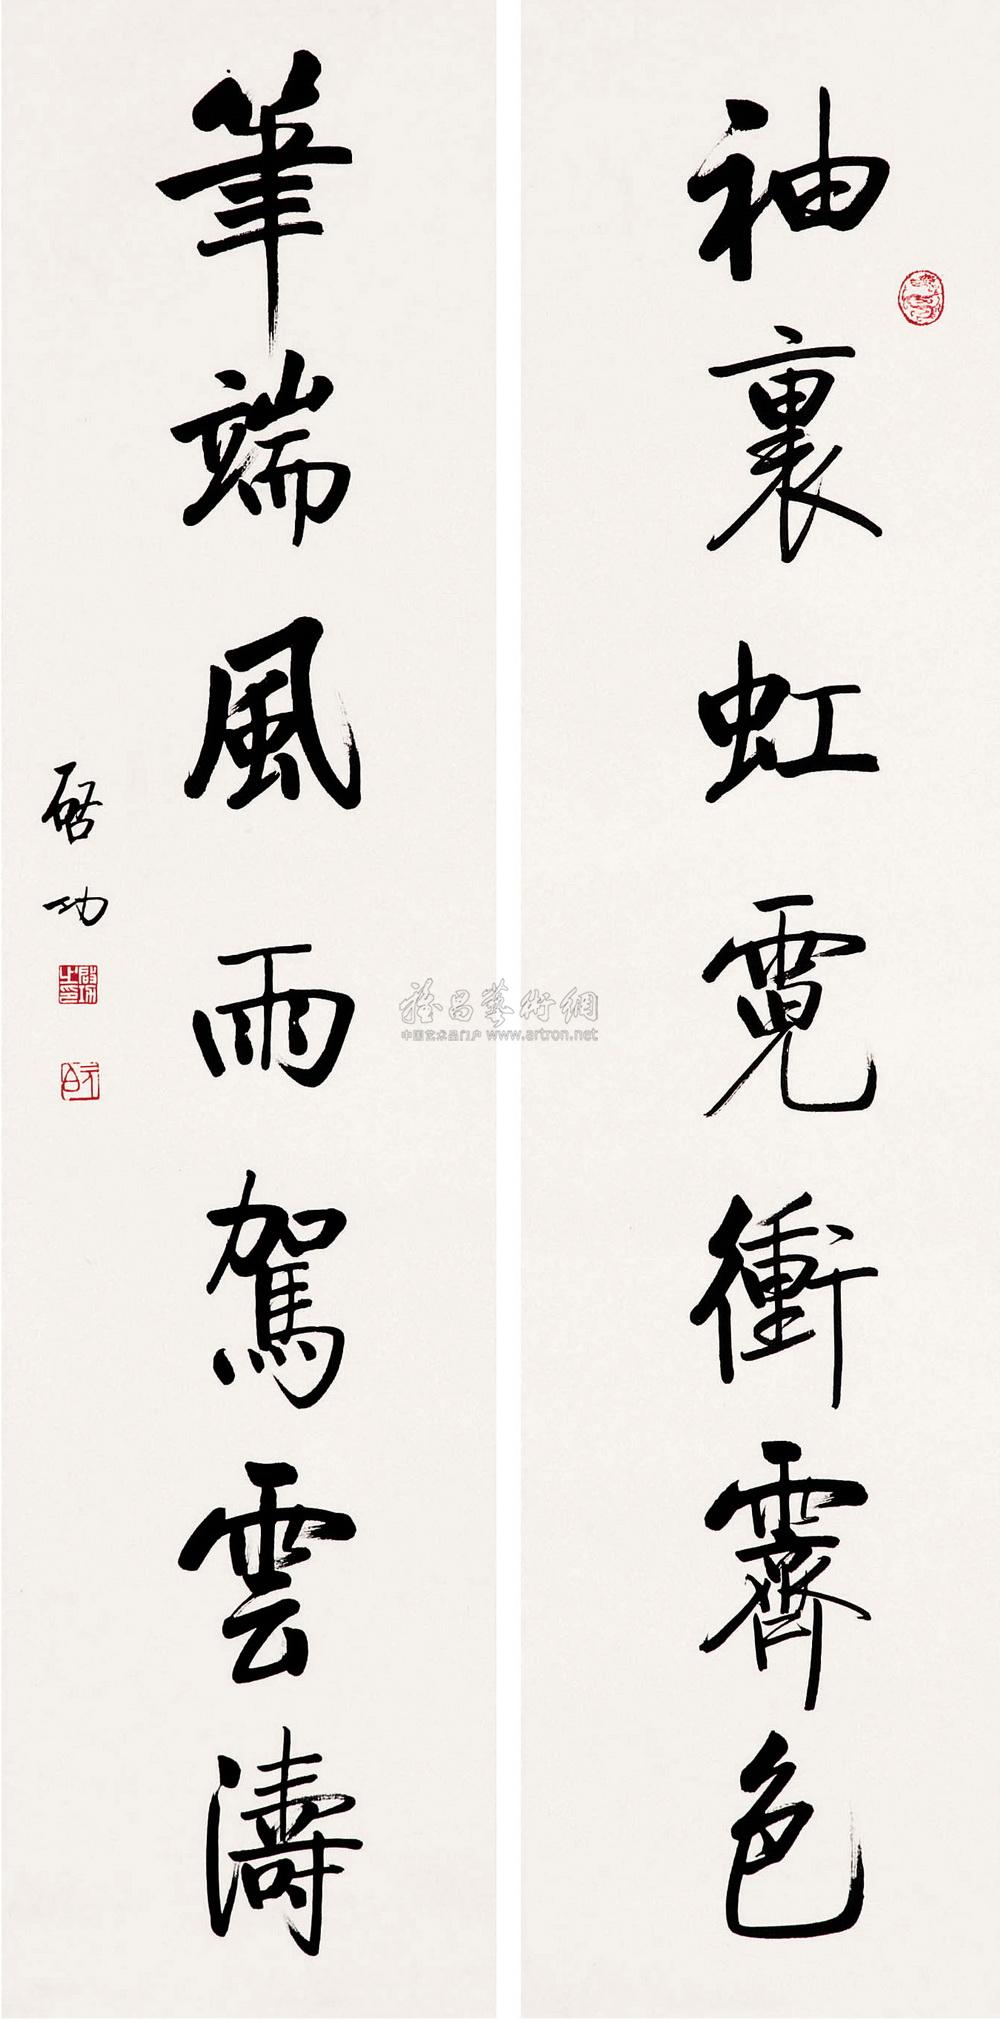 袖裏虹霓衝霽色
筆端風雨駕雲濤
啓功
啓功之印
雅昌藝術網
中国艺术品门户 www.artron.net